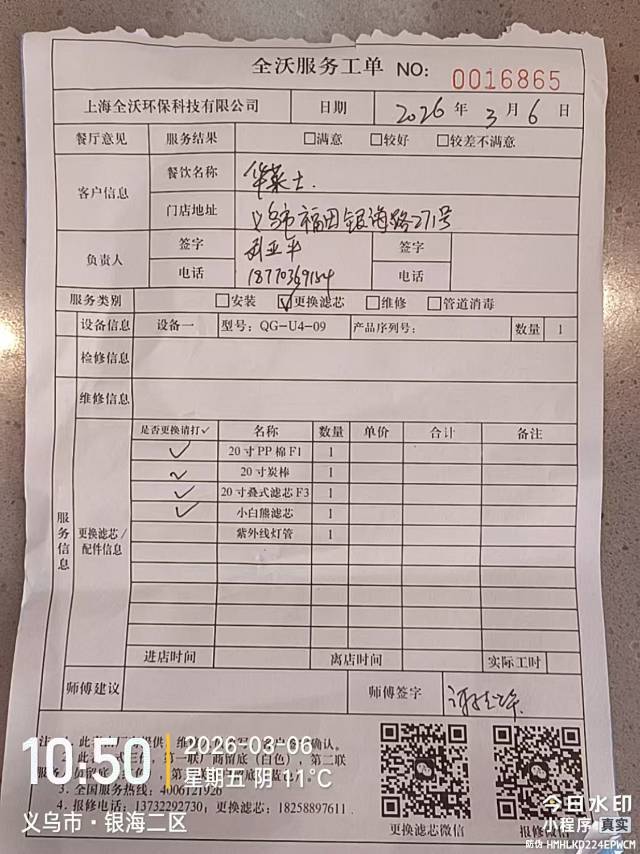 全沃服务工单 NO: 0016865
上海全沃环保科技有限公司 日期 2026 年 3 月 6 日
餐厅意见 服务结果 □满意 □较好 □较差不满意
客户信息 餐饮名称 华莱士.
门店地址 义乌市福田银海路271号
负责人 签字 签字
电话 18770369184 电话
服务类别 □安装 ☑更换滤芯 □维修 □管道消毒
设备信息 设备一 型号: QG-U4-09 产品序列号: 数量 1
检修信息
维修信息
服务信息
更换滤芯/配件信息
是否更换请打✓ 名称 数量 单价 合计 备注
✓ 20寸PP棉F1 1
✓ 20寸炭棒 1
✓ 20寸叠式滤芯F3 1
✓ 小白熊滤芯 1
紫外线灯管 1
进店时间 离店时间 实际工时
师傅建议 师傅签字
确认。
第一联 商留底(白色),第二联
3. 全国服务热线: 4006121926
4. 报修电话: 13732292730; 更换滤芯: 18258897611
更换滤芯微信 报修微信
10:50 2026-03-06
星期五 阴 11℃
义乌市·银海二区
今日水印
小程序 真实
防伪 HMHLKD224EPWCM